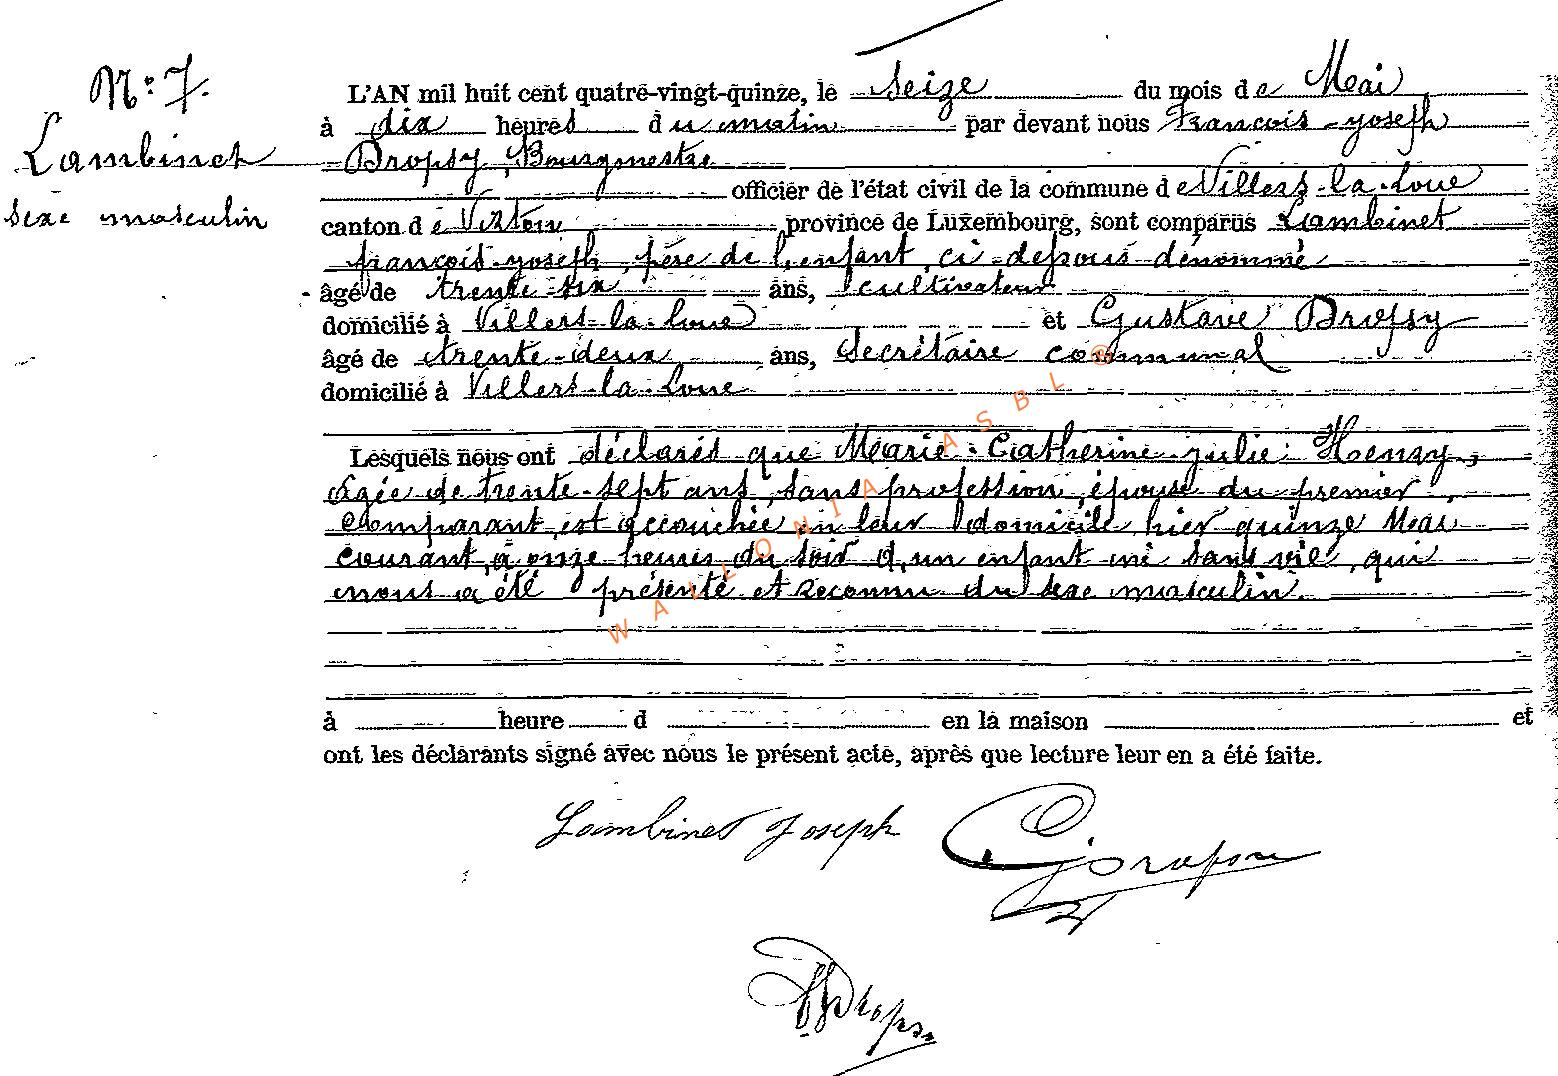 N° 7.
Lambinet
sexe masculin
L'AN mil huit cent quatre-vingt-quinze, le Seize du mois de Mai
à dix heures du matin par devant nous François-yoseph
Dropsy, Bourgmestre
officier de l'état civil de la commune de Villers-la-Loue
canton de Virton province de Luxembourg, sont comparus Lambinet
françois-yoseph, père de l'enfant, ci-dessous dénommé
âgé de trente-six ans, cultivateur
domicilié à Villers-la-Loue et Gustave Dropsy
âgé de trente-deux ans, Secrétaire communal
domicilié à Villers-la-Loue
Lesquels nous ont déclarés que Marie-Catherine-julie Henry,
âgée de trente-sept ans, sans profession, épouse du premier
comparant, est accouchée en leur domicile hier quinze Mai
courant, à onze heures du soir d'un enfant né sans vie, qui
nous a été présenté et reconnu du sexe masculin.
à heure d en la maison et
ont les déclarants signé avec nous le présent acte, après que lecture leur en a été faite.
Lambinet Joseph G Dropsy
fj Dropsy
WALLONIA ASBL ©